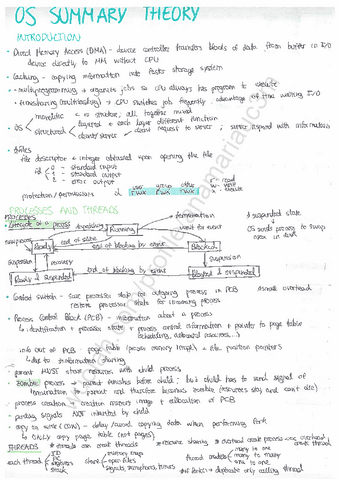 OS SUMMARY THEORY
INTRODUCTION
• Direct Memory Access (DMA) - device controller transfers blocks of data from buffer in I/O
device directly to MM without CPU
• Caching - copying information into faster storage system
• multiprogramming → organize jobs so CPU always has program to execute
• timesharing (multitasking) → CPU switches job frequently, advantage of time waiting I/O
monolithic = no structure, all together
• OS structured layered = each layer different function
client/server = client request to server; server respond with information
• Files
file descriptor = integer obtained upon opening the file
id 0 - standard input
1 - standard output
2 - error output
user group other r - read
protection/permissions d rwx rwx rwx w - write
x - execute
PROCESSES AND THREADS
PROCESSES
• Lifecycle of a process
dispatching Running termination
wait for error
new process Ready end of state
end of blocking by error Blocked
suspension recovery suspension
Ready & suspended end of blocking by error Blocked & suspended
suspended state
OS sends process to swap area in disk
• Context switch - save processor state for outgoing process in PCB
restore processor state for incoming process
overhead
• Process Control Block (PCB) - information about a process
↳ identification + processor state + process control information + pointer to page table
(scheduling, allocated resources...)
info out of PCB page table (process memory length) + file position pointers
↳ due to information sharing
• parent MUST share resources with child process
• zombie process → parent finishes before child; but child has to send signal of
termination → parent and therefore becomes zombie (resources stay and can't die)
• process creation = creation memory image + allocation of PCB
• pending signals NOT inherited by child
• copy on write (COW) - delay/avoid copying data when performing fork
↳ ONLY copy page table (not pages)
THREADS
• threads can create threads
• resource sharing
each thread
PC
registers
stack
share
memory map
open files
signals, semaphores, timers
thread models
many to one
one to one
fork() → duplicate only calling thread